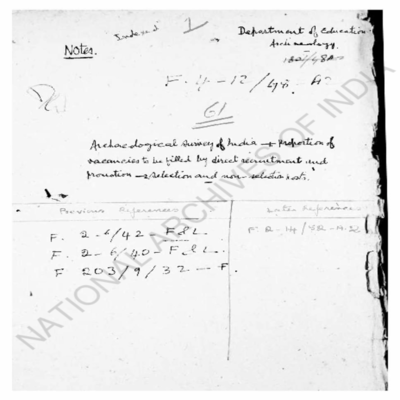 Indexed 1
Notes.
Department of Education
Archaeology
F. 4-12/48. A2
61
Archaeological Survey of India → proportion of
vacancies to be filled by direct recruitment and
promotion → selection and non-selection posts.
Previous References
Later Reference
F. 2-6/42 - F & L.
F. 2-6/40 - F & L.
F 203/9/32 - F.
NATIONAL ARCHIVES OF INDIA